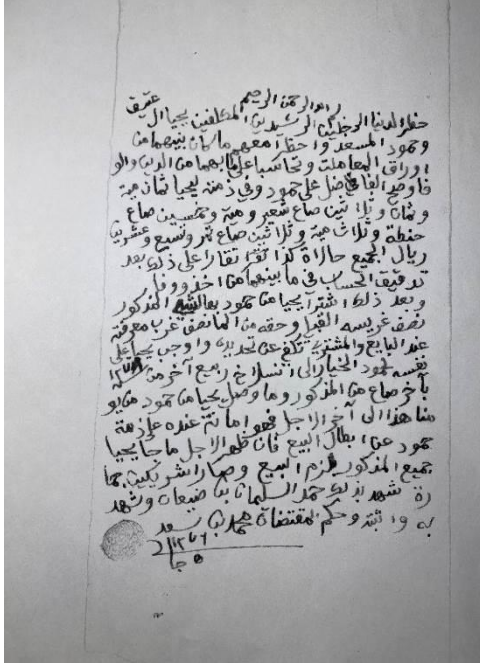 بسم الله الرحمن الرحيم
حظر الدينا الرجلين الرشيدين المكلفين يحيا ال عتيق
وحمود المسعد واحظرا معهما ما كان بينهما من
اوراق المعاملت وتحاسبا على ما بهما من الدين والو
فا وصح الباقي فاضل على حمود وفي ذمته ليحيا ثمان مية
وثمان وثلاثين صاع شعير ومية وخمسين صاع
حنطة وثلاث مية وثلاثين صاع تمر وتسع وعشرين
ريال الجميع حالات كذا تقارا على ذلك بعد
تدقيق الحساب في ما بينهما من اخذ ووفا
وبعد ذلك اشترا يحيا من حمود بهالثمن المذكور
نصف غريسه القبلي وحقه من الما نصف غرب معرفته
عند البايع والمشتري تكفي عن تحديده واوجب يحيا على
نفسه لحمود الخيار الى انسلاخ ربيع آخر من سنة ١٢٧٨
بآخر صاع من المذكور وما وصل يحيا من حمود من يو
منا هذا الى آخر الاجل فهو امانة عنده على ذمة
حمود عن ابطال البيع فان ظهر الاجل ما جا يحيا
جميع المذكور لزم البيع وصارا شريكين
شهد بذلك حمد السلمان بن ضبعان وشهد
به واثبته وحكم بمقتضاه محمد بن سعد
١٢٧٦
جا